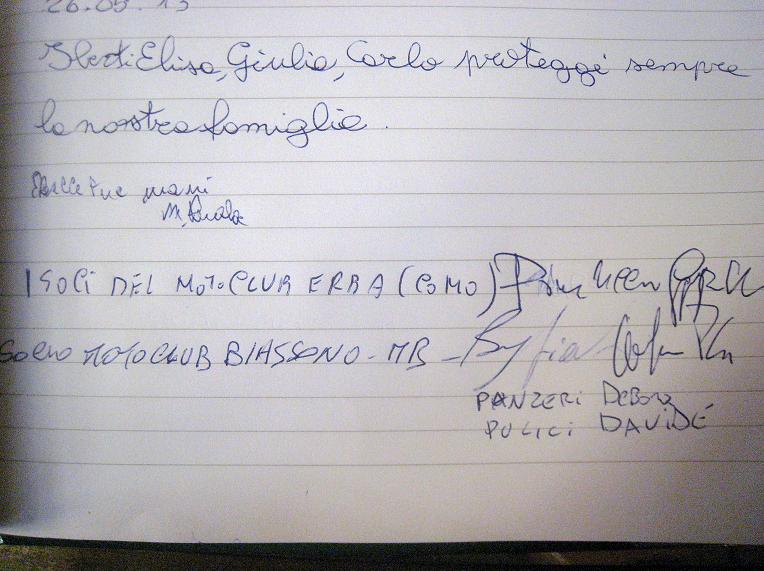 26.05.13
Elisa, Giulia, Carlo proteggi sempre
la nostra famiglia.
tue mani
I SOCI DEL MOTOCLUB ERBA (COMO)
SOCIO MOTOCLUB BIASSONO - MB -
PANZERI DEBORA
PULICI DAVIDE